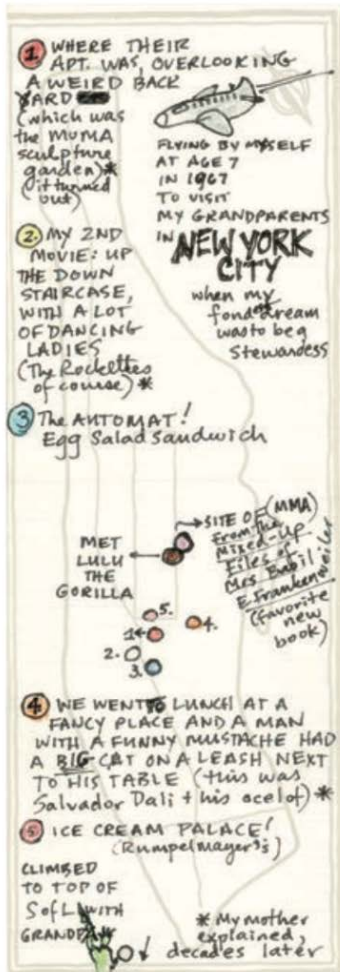 1 WHERE THEIR
APT. WAS, OVERLOOKING
A WEIRD BACK
YARD
(which was
the MUMA
sculpture
garden)*
(it turned
out)
FLYING BY MYSELF
AT AGE 7
IN 1967
TO VISIT
MY GRANDPARENTS
IN NEW YORK
CITY
when my
fondest dream
was to be a
Stewardess
2. MY 2ND
MOVIE: UP
THE DOWN
STAIRCASE,
WITH A LOT
OF DANCING
LADIES
(The Rockettes
of course)*
3 The AUTOMAT!
Egg Salad Sandwich
SITE OF (MMA)
From the
Mixed-Up
Files of
Mrs Basil
E. Frankenweiler
(favorite
new
book)
MET
LULU
THE
GORILLA
5.
1
4.
2.
3.
4 WE WENT TO LUNCH AT A
FANCY PLACE AND A MAN
WITH A FUNNY MUSTACHE HAD
A BIG CAT ON A LEASH NEXT
TO HIS TABLE (this was
Salvador Dali + his ocelot)*
5 ICE CREAM PALACE!
(Rumpelmayer's)
CLIMBED
TO TOP OF
S of L WITH
GRANDPA
* My mother
explained,
decades later